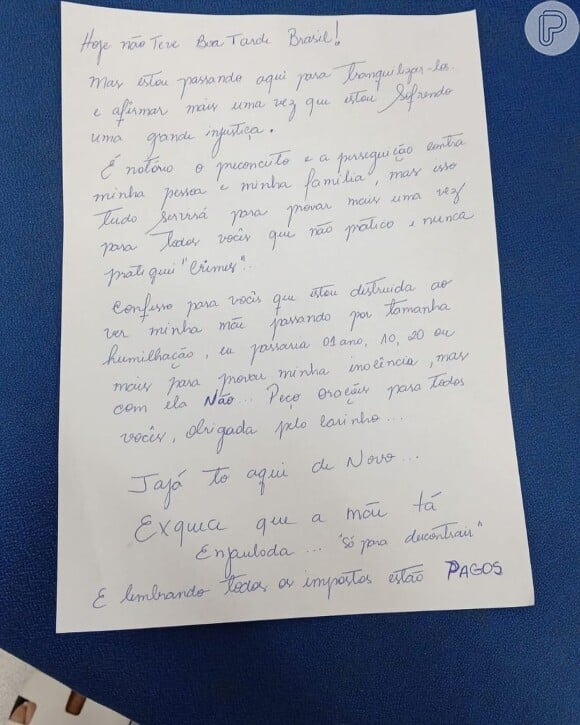 Hoje não Teve Boa Tarde Brasil!
Mas estou passando aqui para tranquilizar-los
e afirmar mais uma vez que estou Sofrendo
uma grande injustiça.
É notório o preconceito e a perseguição contra
minha pessoa e minha família, mas isso
tudo servirá para provar mais uma vez
para todos vocês que não pratico e nunca
pratiquei "Crimes"..
Confesso para vocês que estou destruida ao
ver minha mãe passando por tamanha
humilhação, eu passaria 01 ano, 10, 20 ou
mais para provar minha inocência, mas
com ela Não... Peço orações para todos
vocês, obrigada pelo carinho...
Jajá to aqui de Novo...
Exquece que a mãe tá
Enjaulada... "Só para descontrair"
E lembrando todos os impostos estão PAGOS
P